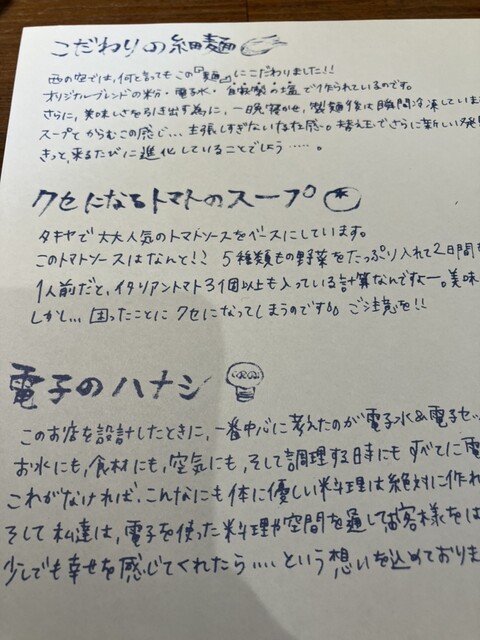 こだわりの細麺
西の空では、何と言ってもこの『麺』にこだわりました!!
オリジナルブレンドの粉・電子水・自然製の塩で作られているのです。
さらに、美味しさを引き出す為に、一晩寝かせ、製麺後は瞬間冷凍していま
スープとからむこの感じ…主張しすぎない存在感。替え玉でさらに新しい発
きっと、来るたびに進化していることでしょう……。
クセになるトマトのスープ
タキヤで大大人気のトマトソースをベースにしています。
このトマトソースはなんと!? 5種類もの野菜をたっぷり入れて2日間
1人前だと、イタリアントマト3個以上も入っている計算なんですよー。美味
しかし…困ったことにクセになってしまうのです。ご注意を!!
電子のハナシ
このお店を設計したときに、一番中心に考えたのが電子水&電子セッ
お水にも、食材にも、空気にも、そして調理する時にもすべてに電
これがなければ、こんなにも体に優しい料理は絶対に作れ
そして私達は、電子を使った料理や空間を通してお客様をは
少しでも幸せを感じてくれたら…、という想いを込めておりま